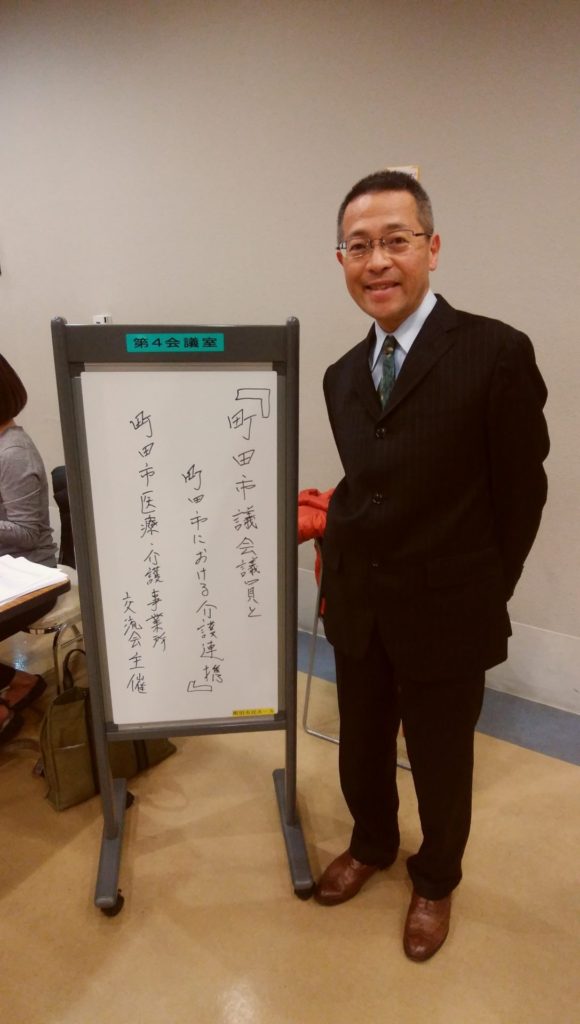 第4会議室
『町田市議会議員と
町田市における介護連携』
町田市医療・介護事業所
交流会主催
町田市民ホール